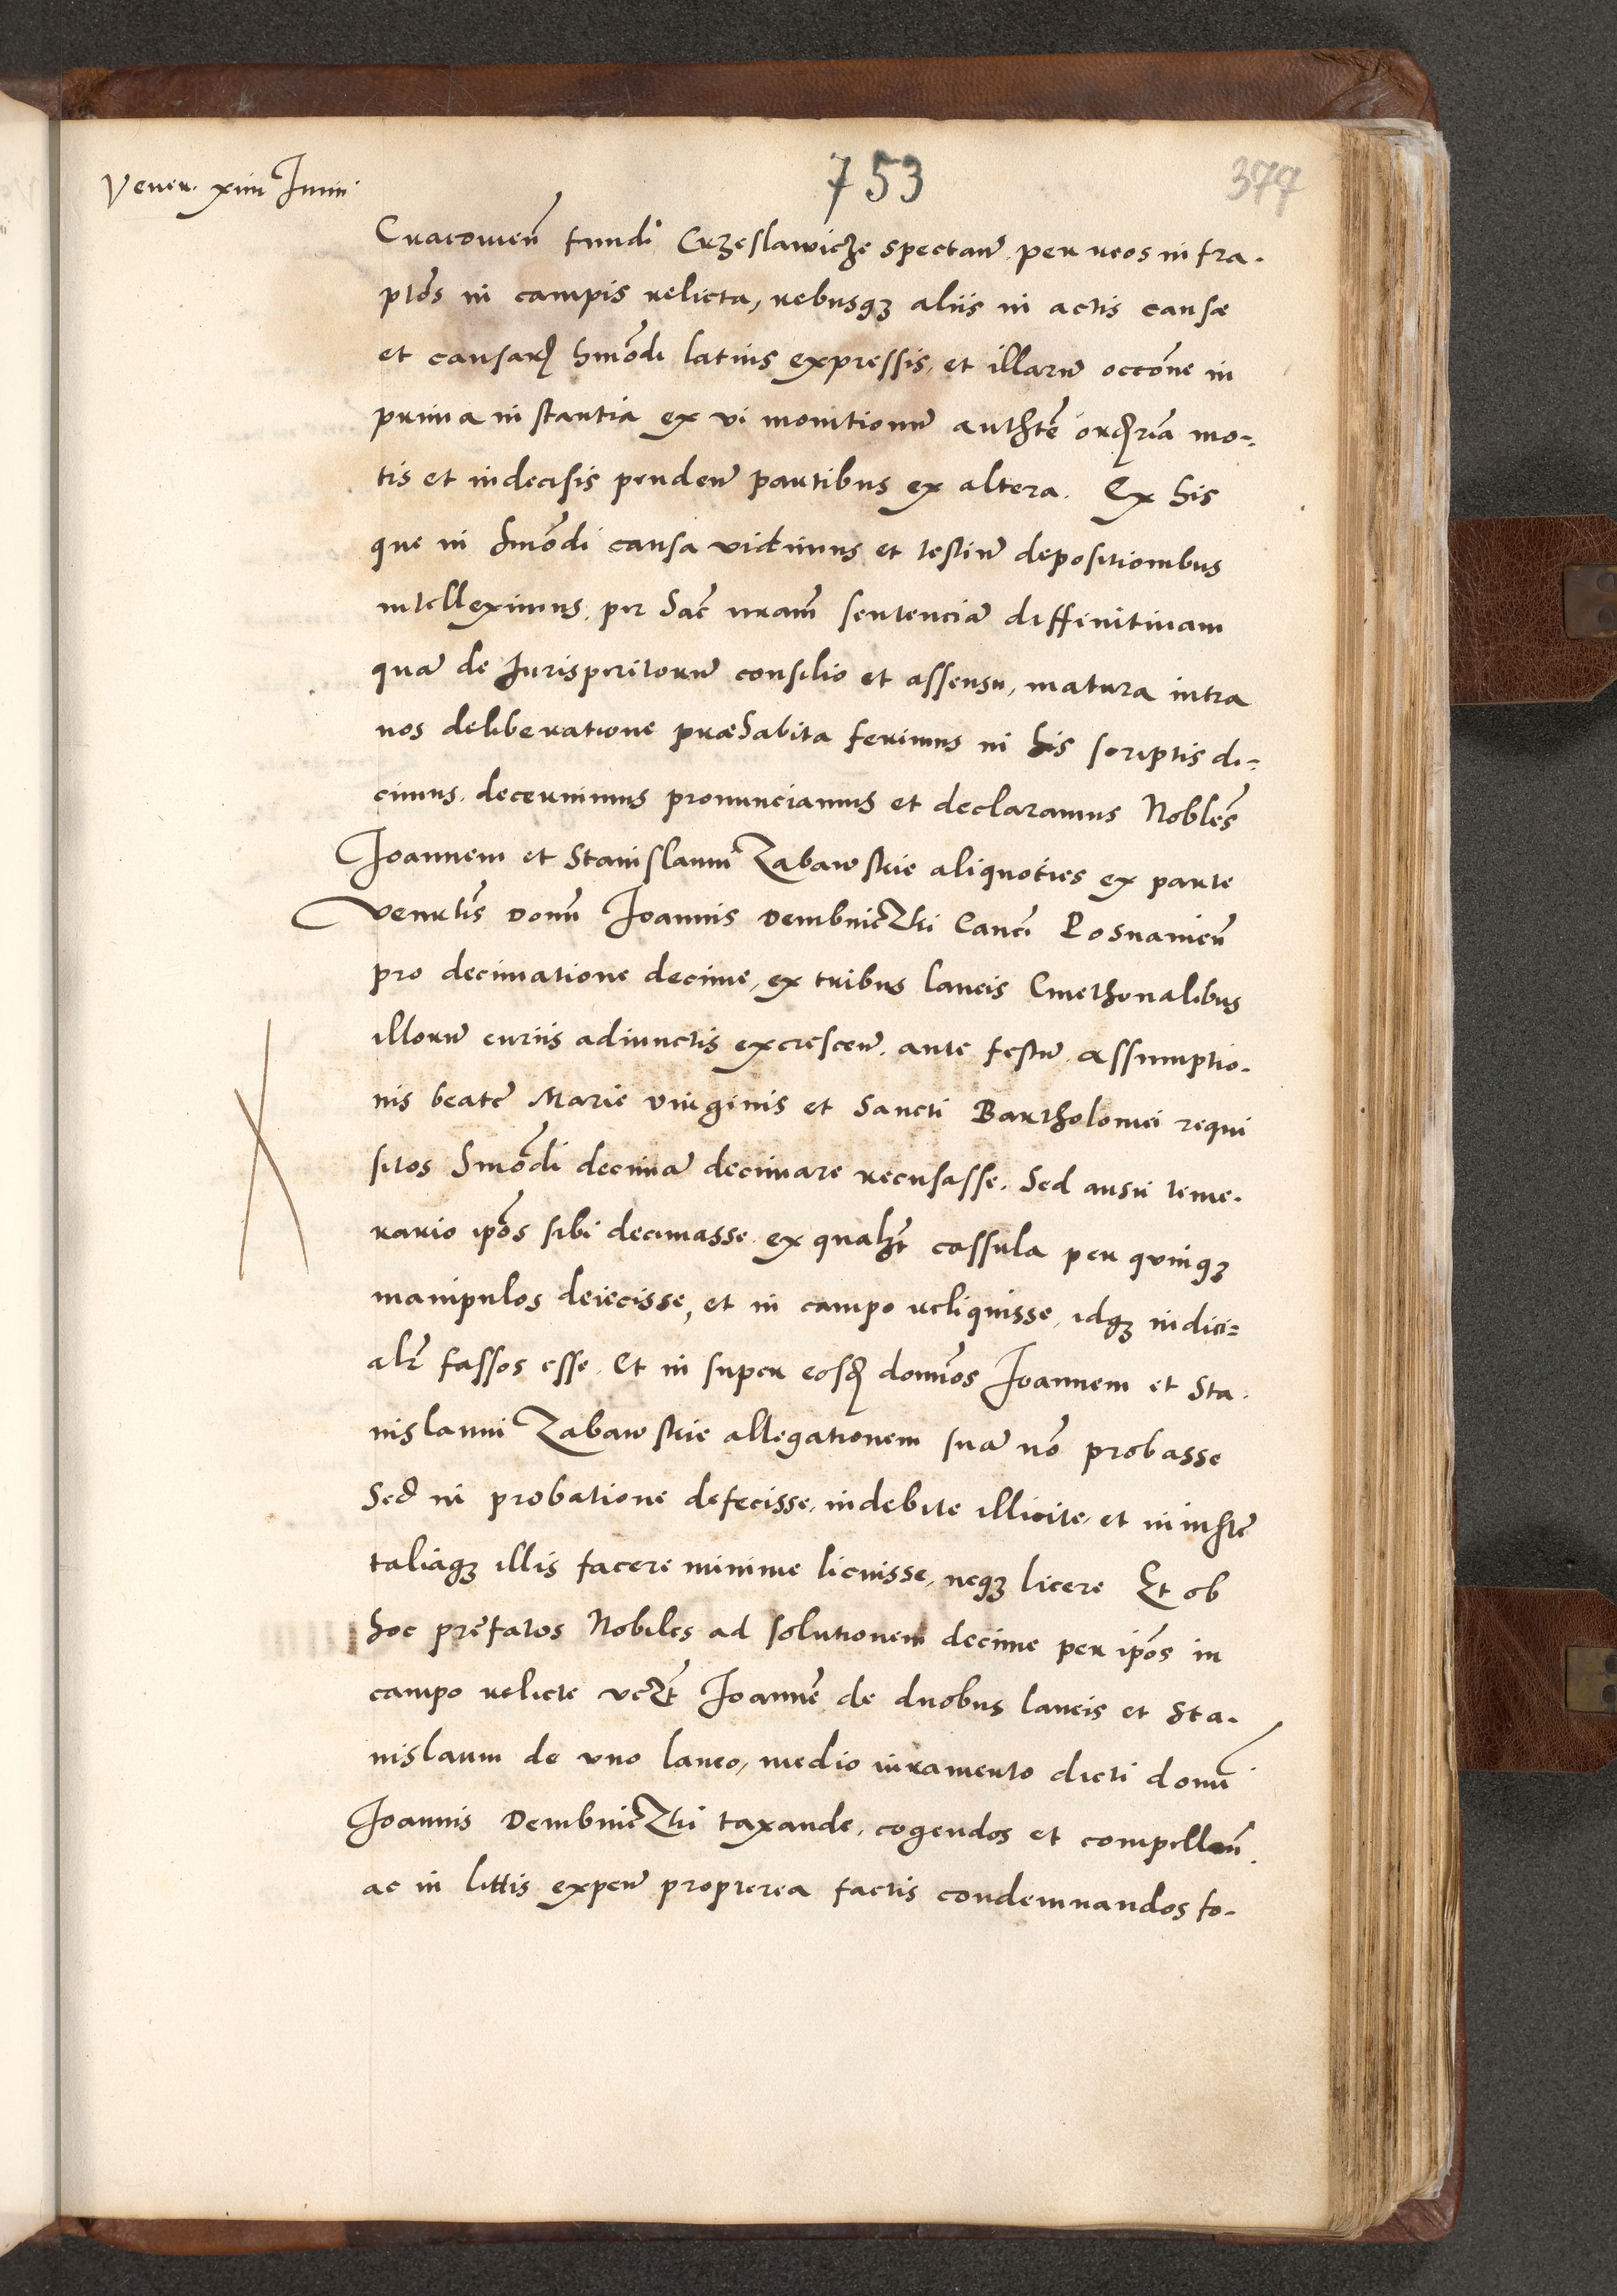 753
377
Vener. xiiii Junii
Cracovien̄ fundi Crzeslawicze spectan̄. per reos infra-
ptos in campis relicta, rebusq₃ aliis in actis causæ
et causarꝝ hm̄odi latius expressis, et illarum occōne in
prima instantia ex vi monitionum authēt ordriam mo-
tis et indecisis penden̄ partibus ex altera. Ex his
que in hmōdi causa vidimus et testium depositionibus
intelleximus, per hāc nr̄am sentenciam diffinitivam
quam de Jurisperitorum consilio et assensu, matura intra
nos deliberatione præhabita ferimus in his scriptis di-
cimus, decernimus pronunciamus et declaramus Nobles̄
Joannem et Stanislaum Zabawskie aliquoties ex parte
Venrl̄is Domī Joannis Dembniczki Canci Posnanien̄
pro decimatione decime, ex tribus laneis Cmethonalibus
illorum curiis adiunctis excrescen̄. ante festum assumptio-
nis beate Marie virginis et Sancti Bartholomei requi
sitos hmōdi decimam decimare recusasse. Sed ausu teme-
rario ipōs sibi decimasse ex qualz̄t cassula per quinq₃
manipulos deiecisse, et in campo reliquisse, idq₃ iudici=
alr̄ fassos esse. Et in super eosdꝫ domīos Joannem et Sta-
nislaum Zabawskie allegationem suam nō probasse
Sed in probatione defecisse, indebite illicite, et iniuste
taliaq₃ illis facere minime licuisse, neq₃ licere Et ob
hoc prefatos Nobiles ad solutionem decime per ipōs in
campo relicte vcz̄t Joannē de duobus laneis et Sta-
nislaum de uno laneo, medio iuramento dicti domī
Joannis Dembniczki taxande, cogendos et compellen̄.
ac in littis expen̄ propterea factis condemnandos fo-